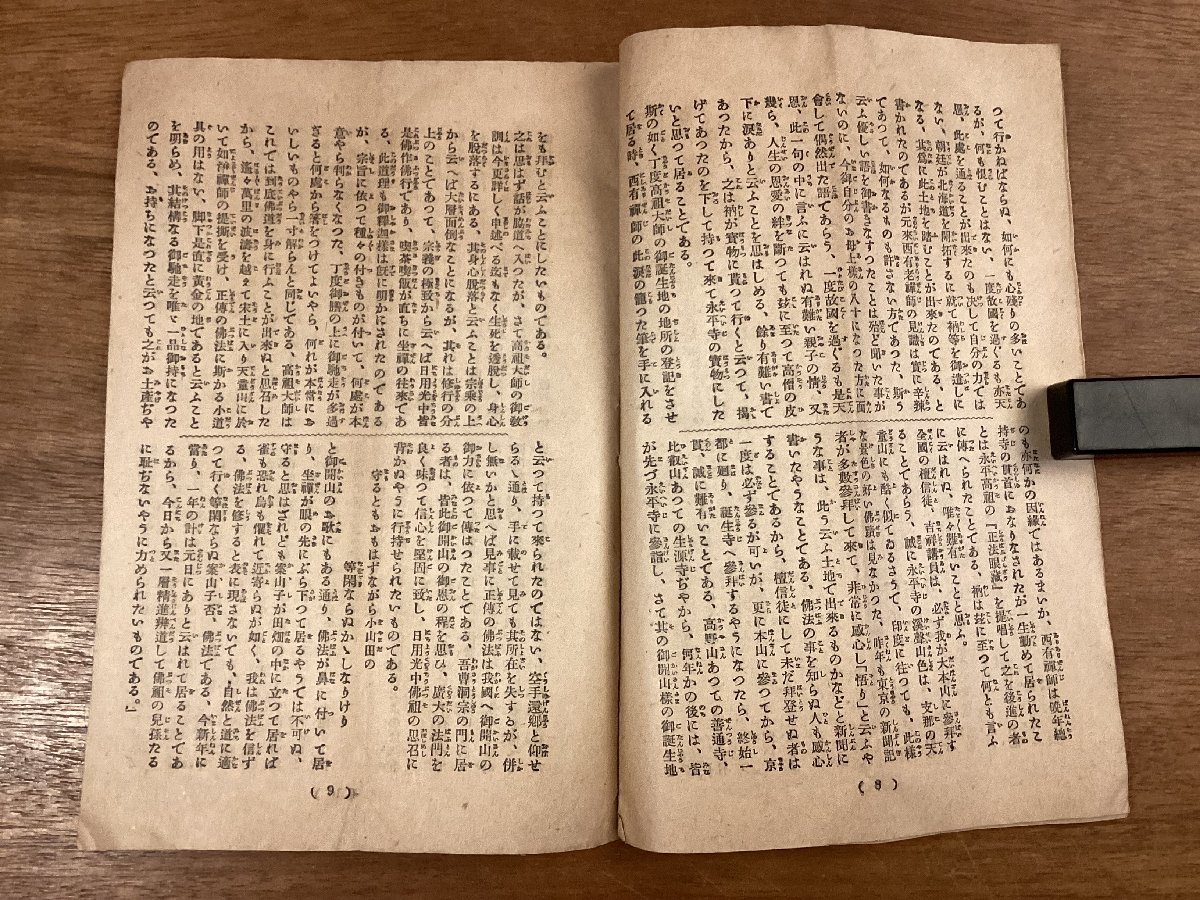 つて行かねばならぬ、如何にも心殘りの多いことであ
るが、何も恨むことはない、一度故國を過ぐるも亦天
恩、此處を通ることが出來たのも決して自分の力では
ない、朝廷が北海道を開拓するに就て衲等を御遣しに
なる、其爲に此土地を踏むことが出來たのである、と
書かれたのであるが元來西有老禪師の見識は實に辛辣
であつて、如何なるものも許さない方であつた、斯う
云ふ優しい語を御書きなすつたことは殆ど聞いた事が
ないのに、今御自分のお母上樣の入寂になつた方に面
會して偶然出た語であらう、一度故國を過ぐるも是天
恩、此一句の中に言ふに云はれぬ有難い親子の情、又
幾ら、人生の恩愛の絆を斷つても玆に至つて高僧の皮
下に涙ありと云ふことを思はしめる、餘り有難い書で
あつたから、之は衲が寳物に貰つて行くと云つて、揭
げてあつたのを下して持つて來て永平寺の寳物にした
いと思つて居ることである。
斯の如く丁度高祖大師の御誕生地の地所の登記をさせ
て居る時、西有禪師の此涙の籠つた筆を手に入れる
のも亦何かの因緣ではあるまいか、西有禪師は晩年總
持寺の貫首におなりなされたが一生勤めて居られたこ
とは永平高祖の『正法眼藏』を提唱して之を後進の者
に傳へられたことである、衲は玆に至つて何とも言ふ
に云はれぬ、唯々難有いことと思ふ。
全國の檀信徒、吉祥講員は、必ず我が大本山に參拜す
ることであらう、誠に永平寺の溪聲山色は、支那の天
童山にも酷く似てゐるさうで、印度に往つても、此樣
な景色の好い佛蹟は見なかつた、昨年も東京の新聞記
者が多數參拜して來て、非常に感心し「悟り」と云ふや
うな事は、此う云ふ土地で出來るものかなどと新聞に
書いたやうなことである。佛法の事を知らぬ人も感心
することであるから、檀信徒にして未だ拜登せぬ者は
一度は必ず參るが可いが、更に本山に參つてから、京
都に廻り、誕生寺へ參拜するやうになつたら、終始一
貫、誠に難有いことである、高野山あつての善通寺、
比叡山あつての生源寺ぢやから、何年かの後には、皆
が先づ永平寺に參詣し、さて其の御開山樣の御誕生地
( 8 )
をも拜むと云ふことにしたいものである。
之は思はず話が脇道へ入つたが、さて高祖大師の御敎
訓は今更詳しく申述べる迄もなく生死を透脫し、身心
を脫落するにある、其身心脫落と云ふことは宗乘の上
から云へば大層面倒なことになるが、其れは修行の分
上のことであつて、宗義の極致から云へば日用光中皆
是佛作佛行であり、喫茶喫飯が直ちに坐禪の往來であ
る、此道理も御釋迦樣は旣に明かにされたのである
が、宗旨に依つて種々の付きものが付いて、何處が本
意やら判らなくなつた、丁度御膳の上に御馳走が多過
ざると何處から箸をつけてよいやら、何れが本當にお
いしいものやら一寸解らんと同じである、高祖大師は
これでは到底佛道を身に行ふことが出來ぬと思召した
から、遙々萬里の波濤を越えて宋土に入り天童山に於
いて如淨禪師の提撕を受け、正傳の佛法に斯かる小道
其の用はない、脚下は直に黃金の地であると云ふこと
を明らめ、其結構なる御馳走を唯て一品御持になつた
のである、お持ちになつたと云つても之がお土產ぢや
と云つて持つて來られたのではない、空手還鄕と仰せ
らるゝ通り、手に載せて見ても其所在を失するが、併
し無いかと思へば見事に正傳の佛法は我國へ御開山の
御力に依つて傳はつたことである、吾曹洞宗の門に居
る者は、皆此御開山の御恩の程を思ひ、廣大の法門を
良く味つて信心を堅固に致し、日用光中佛祖の思召に
背かぬやうに行持せられたいものである。
守るともおもはずながら小山田の
等閑ならぬかゝしなりけり
と御開山のお歌にもある通り、佛法が鼻に付いて居
り、坐禪が眼の先にぶら下つて居るやうでは不可ぬ、
守ると思はざれども案山子が田畑の中に立つて居れば
雀も恐れ鳥も懼れて近寄らぬが如く、我は佛法を信ず
る、佛法を修すると表に現さないでも、自然と道に適
つて行く等閑ならぬ案山子否、佛法である、今新年に
當り、一年の計は元日にありと云はれて居ることであ
るから、今日から又一層精進辨道して佛祖の兒孫たる
に恥ぢないやうに力められたいものである。」
( 9 )